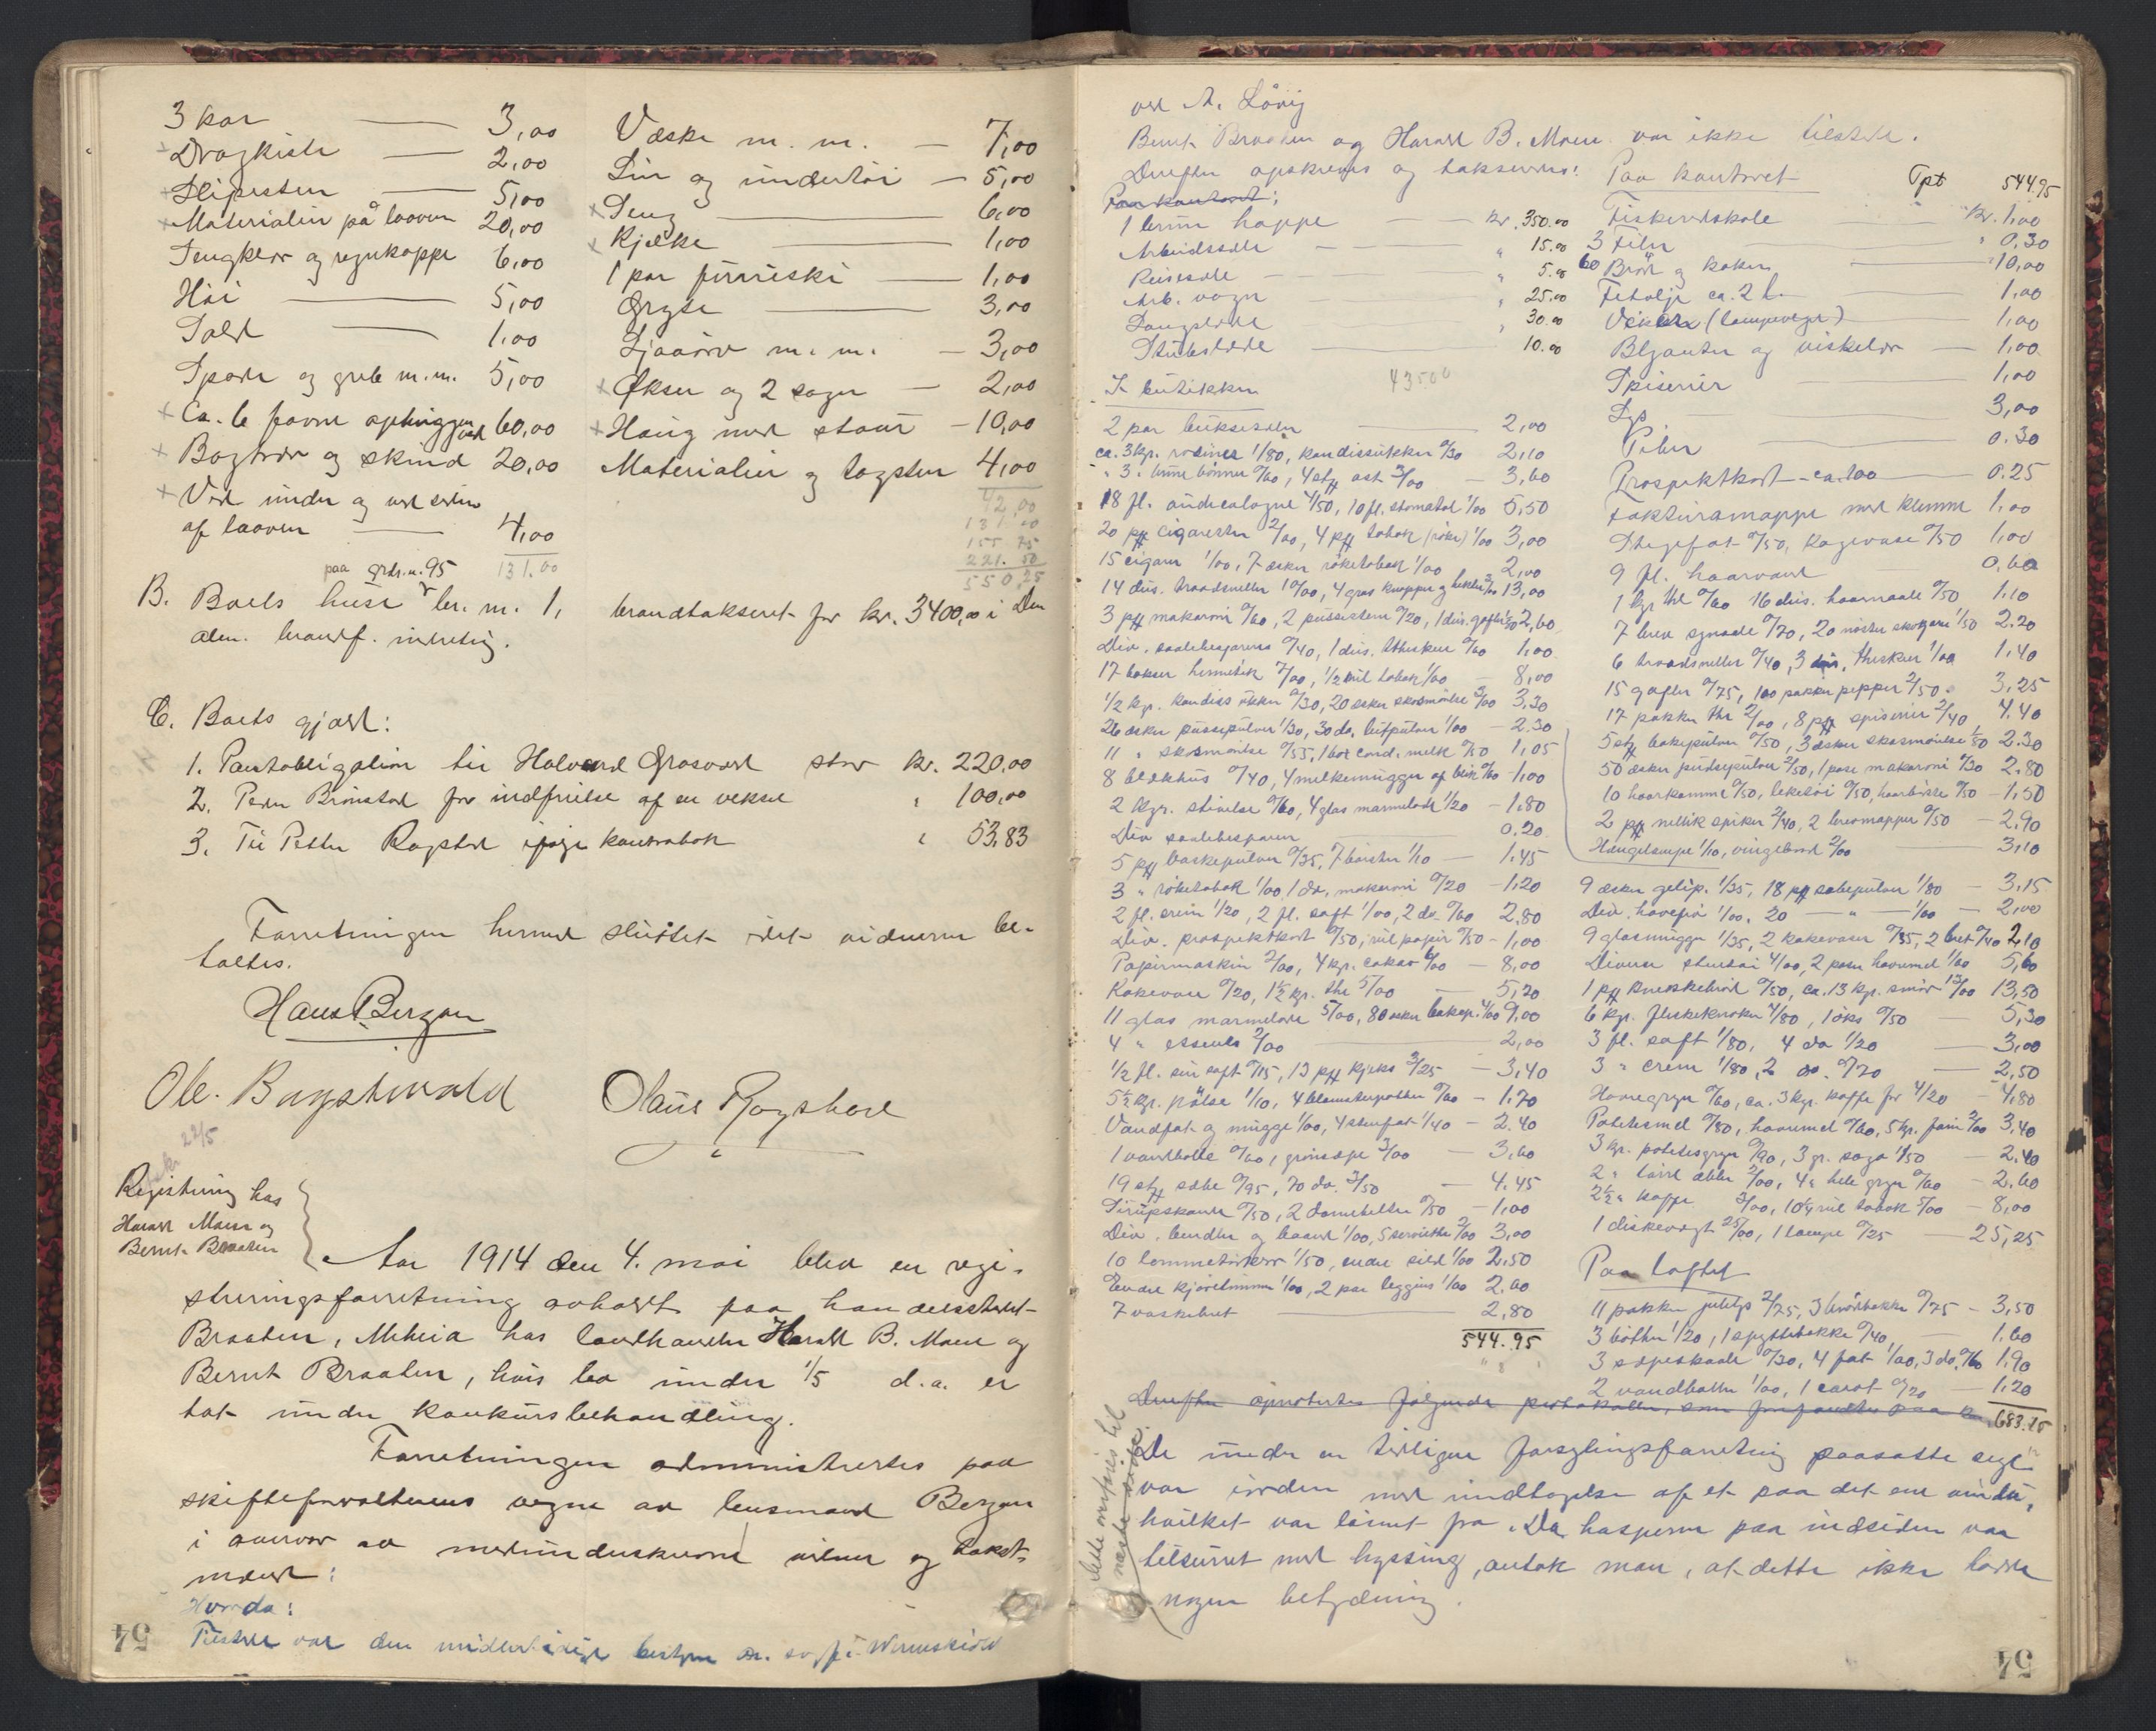 3 kar — 3,00
Dragkiste — 2,00
Slipesten — 5,00
Materialier på laaven 20,00
Sengklær og regnkappe 6,00
Höi — 5,00
Salt — 1,00
Spader og greb m.m. 5,00
Ca. 6 favne ophuggen ved 60,00
Bogtrær og skind 20,00
Ved under og ved siden
af laaven — 4,00
131.00
Væske m. m. — 7,00
Lin og undertöi — 5,00
Seng — 6,00
Kjelke — 1,00
1 par furuski — 1,00
Gryte — 3,00
Ljaaorv m. m. — 3,00
Økser og 2 sager — 2,00
Haug med staur — 10,00
Materialier og tagsten 4,00
42,00
131.00
155 75
221. 50
550,25
paa grdr.n. 95
B. Boets huse br. n. 1, brandtakseret for kr. 3400,00 i Den
alm. brandf. indretng.
C. Boets gjæld:
1. Pantobligation til Halvard Grosvold stor kr. 220,00
2. Peder Brönstad for indfrielse af en veksel " 100,00
3. Til Petter Rogstad ifölge kontrabok " 53,83
Forretningen hermed sluttet idet vidnerne be-
taltes.
Hans Bergan
Ole. Bugstvold Olaus Rogstad
22/5
Registrering hos
Harald Moen og
Bernt Braaten
Aar 1914 den 4. mai blev en regi-
streringsforretning avholdt paa handelsstedet
Braaten, Meheia hos landhandler Harald B. Moen og
Bernt Braaten, hvis bo under 1/5 d.a. er
tat under konkursbehandling.
Forretningen administrertes paa
skifteforvalterens vegne av lensmand Bergan
i overvær av medunderskrevne vidner og takst-
mænd:
Hvorda:
Tilstede var den midlertidige bestyrer o.r. sagf. Wermskiold
54
ved A. Lövig
Bernt Braaten og Harald B. Moen var ikke tilstede.
Derefter opskreves og takseredes:
Paa kontoret:
1 brun hoppe — kr. 350.00
Arbeidssele — " 15.00
Reisesele — " 5.00
Arb. vogn " 25.00
Langslede " 30.00
Stubslede — 10.00
435.00
I butikken
2 par buksesæler — 2,00
ca. 3 kg. rosiner 1/80, kandissukker 0/30 2,10
" 3 " brune bönner 0/60, 4 stk ost 3/00 — 3,60
18 fl. eaudecologne 4/50, 10 fl. stomatol 1/00 5,50
20 pk cigaretter 2/00, 4 pk tobak (röke) 1/00 3,00
15 cigarer 1/00, 7 æsker röketobak 1/00 2,00
14 dus. traadsneller 10/00, 4 gros knapper og hekter 3/00 13,00
3 pk makaroni 0/60, 2 pudsesten 0/20, 1 dus. gafler 1/80 2,60
Div. saalebesparere 0/40, 1 dus. theskeer 0/60 1,00
17 bokser hermetik 7/00, 1/2 rul tobak 1/00 — 8,00
1/2 kg. kandissukker 0/30, 20 æsker skosmörelse 3/00 3,30
26 æsker pudsepulver 1/30, 30 do. lutpulver 1/00 — 2.30
11 " skosmörelse 0/55, 1 box cond. melk 0/50 1,05
8 blækhus 0/40, 4 melkemugger af blik 0/60 1,00
2 kgr. stivelse 0/60, 4 glas marmelade 1/20 — 1,80
Div saalebesparere 0.20
5 pk baskepulver 0/35, 7 börster 1/10 — 1,45
3 " röketobak 1/00, 1 do. makaroni 0/20 — 1,20
2 fl. crem 1/20, 2 fl. saft 1/00, 2 do. 0/60 2,80
Div. prospektkort 0/50, rul papir 0/50 — 1,00
Papirmaskin 2/00, 4 kg. cakao 6/00 — 8,00
Kakevase 0/20, 1 1/2 kg. the 5/00 — 5,20
11 glas marmelade 5/00, 80 æsker bakep. 4/00 9,00
4 " essents 2/00 — 2,00
1/2 fl. sur saft 0/15, 13 pk kjeks 3/25 — 3,40
5 1/2 kgr. pölse 1/10, 4 blomsterpotter 0/60 — 1,70
Vandfat og mugge 1/00, 4 stenfat 1/40 — 2.40
1 vandbötte 0/60, grönsæpe 3/00 — 3,60
19 stk sæbe 0/95, 70 do. 3/50 — 4.45
Sirupskande 0/50, 2 damebelter 0/50 — 1,00
Div. bendler og baand 1/00, 5 servietter 2/00 3,00
10 lommetörklær 1/50, endre sild 1/00 2,50
Endre kjöretömmer 1/00, 2 par leggins 1/00 2.00
7 vaskebret — 2,80
544.95
Paa kontoret Tpt 544.95
Fiskeredskole " kr. 1,00
3 Filer " 0,30
60 Bröd og kaker " 10,00
Fetolje ca. 2 l. 1,00
Veker (lampeveger) 1,00
Blyanter og viskelær — 1,00
Spiserier 1,00
Lys — 3,00
Piber — 0.30
Prospektkort — ca. 100 — 0.25
Fakturamappe med klemme 1,00
Stegefat 0/50, kagevase 0/50 1,00
9 fl. haarvand 0,60
1 kgr. the 0/60 16 dus. haarnaale 0/50 1.10
7 brev synaale 0/70, 20 nöster skogarn 1/50 2.20
6 traadsneller 0/40, 3 dus. theskeer 1/00 1,40
15 gafler 0/75, 100 pakker pepper 2/50 3,25
17 pakker the 2/00, 8 pk spiserier 2/40 4.40
5 stk bakepulver 0/50, 3 æsker skosmörelse 1/80 2.30
50 æsker pudsepulver 2/50, 1 pose makaroni 0/30 2,80
10 haarkamme 0/50, leketöi 0/50, haarbörste 0/50 — 1,50
2 pk nellik spiker 2/40, 2 brevmapper 0/50 — 2,90
Hængelampe 1/10, vingebord 2/00 — 3,10
9 æsker gelép. 1/35, 18 pk sæbepulver 1/80 — 3,15
Div. havefrö 1/00, 20 — " — 1/00 — 2,00
9 glasmugger 1/35, 2 kakevaser 0/35, 2 bret 0/40 2,10
Diverse stentöi 4/00, 2 poser havremel 1/60 5,60
1 pk knækkebröd 0/50, ca. 13 kg. smör 13/00 13,50
6 kg. fleskeknoker 4/80, 1 öks 0/50 5,30
3 fl. saft 1/80, 4 do 1/20 — 3,00
3 " crem 1/80, 2 do. 0/70 — 2,50
Havregryn 0/60, ca. 3 kg. kaffe for 4/20 — 4,80
Potetesmel 0/80, havremel 0/60, 5 kg. farin 2/00 3,40
3 kgr. potetesgryn 0/90, 3 gr. sago 1/50 — 2.40
2 " törrede æbler 2/00, 4 " hele gryn 0/60 — 2,60
2 1/2 " kaffe 3/00, 10 1/4 rul tobak 5/00 — 8,00
1 diskevægt 25/00, 1 lampe 0/25 — 25,25
Paa loftet
11 pakker julelys 2/75, 3 brödbakker 0/75 — 3,50
3 bötter 1/20, 1 spyttebakke 0/40 — 1,60
3 sæpeskaale 0/30, 4 fat 1/00, 3 do. 0/60 1,90
2 vandbötter 1/00, 1 carot 0/20 — 1,20
683.15
Derefter opnotertes fölgende protokoller, som forfandtes paa
De under en tidligere forseglingsforretning paasatte segl
var iorden med undtagelse af et paa det ene vindu,
hvilket var lösnet fra. Da hasperne paa indsiden var
tilsurret med hyssing, antok man, at dette ikke havde
nogen betydning.
Dette overföres til
næste side.
54